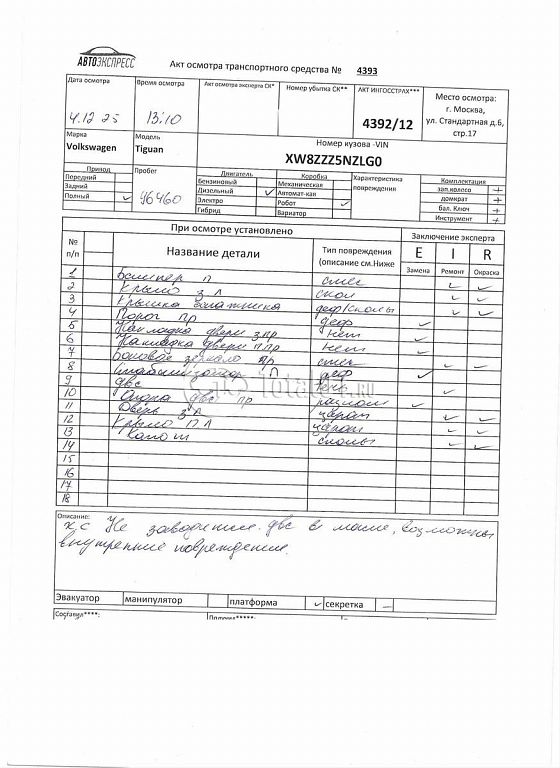 АВТОЭКСПРЕСС
Акт осмотра транспортного средства № 4393
Дата осмотра Время осмотра Акт осмотра эксперта СК* Номер убытка СК** АКТ ИНГОССТРАХ*** Место осмотра:
г. Москва,
ул. Стандартная д.6,
стр.17
4.12 25 13:10 4392/12
Марка Модель Номер кузова -VIN
Volkswagen Tiguan XW8ZZZ5NZLG0
Привод Пробег Двигатель Коробка Характеристика повреждения Комплектация
Передний Бензиновый Механическая зап.колесо +
Задний Дизельный ✓ Автомат-кая домкрат +
Полный ✓ 46460 Электро Робот ✓ бал. Ключ +
Гибрид Вариатор Инструмент +
При осмотре установлено Заключение эксперта
№ п/п Название детали Тип повреждения (описание см.Ниже E I R
Замена Ремонт Окраска
1 Бампер п смес
2 Крыло з л скол ✓ ✓
3 Крышка багажника деф/сколы ✓ ✓
4 Порог пр деф ✓ ✓
5 Накладка двери з пр нет ✓
6 Накладка двери п пр нет ✓
7 Боковое зеркало пр смес ✓
8 Стабилизатор п деф ✓ ✓
9 ДВС течь ✓
10 Опора двс пр разлом
11 Дверь з л царап ✓
12 Крыло п л царап ✓ ✓
13 Капот сколы ✓ ✓
14 ✓ ✓
15
16
17
18
Total01.RU
Описание:
х.с Не заводится. двс в масле, возможны
внутренние повреждения.
Эвакуатор манипулятор платформа ✓ секретка –
Составил****: